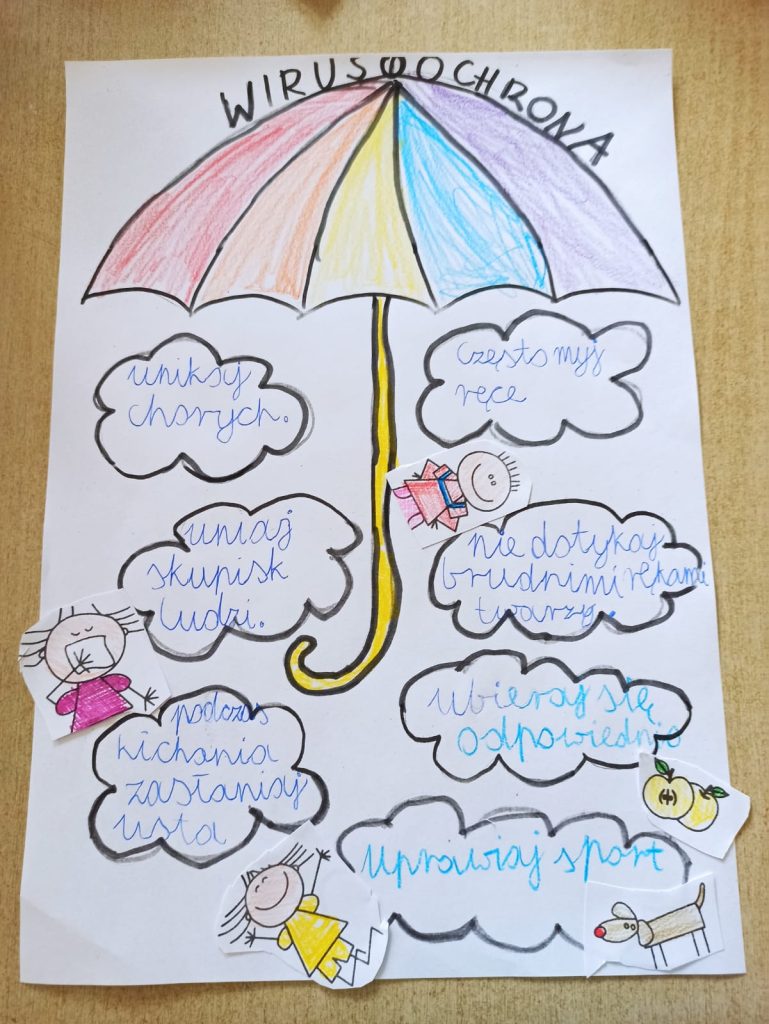 WIRUSOOCHRONA
unikaj
chorych.
Często myj
ręce
uniaj
skupisk
ludzi.
nie dotykaj
brudnimi rękami
twarzy.
podczas
kichania
zasłaniaj
usta
ubieraj się
odpowiednio
uprawiaj sport